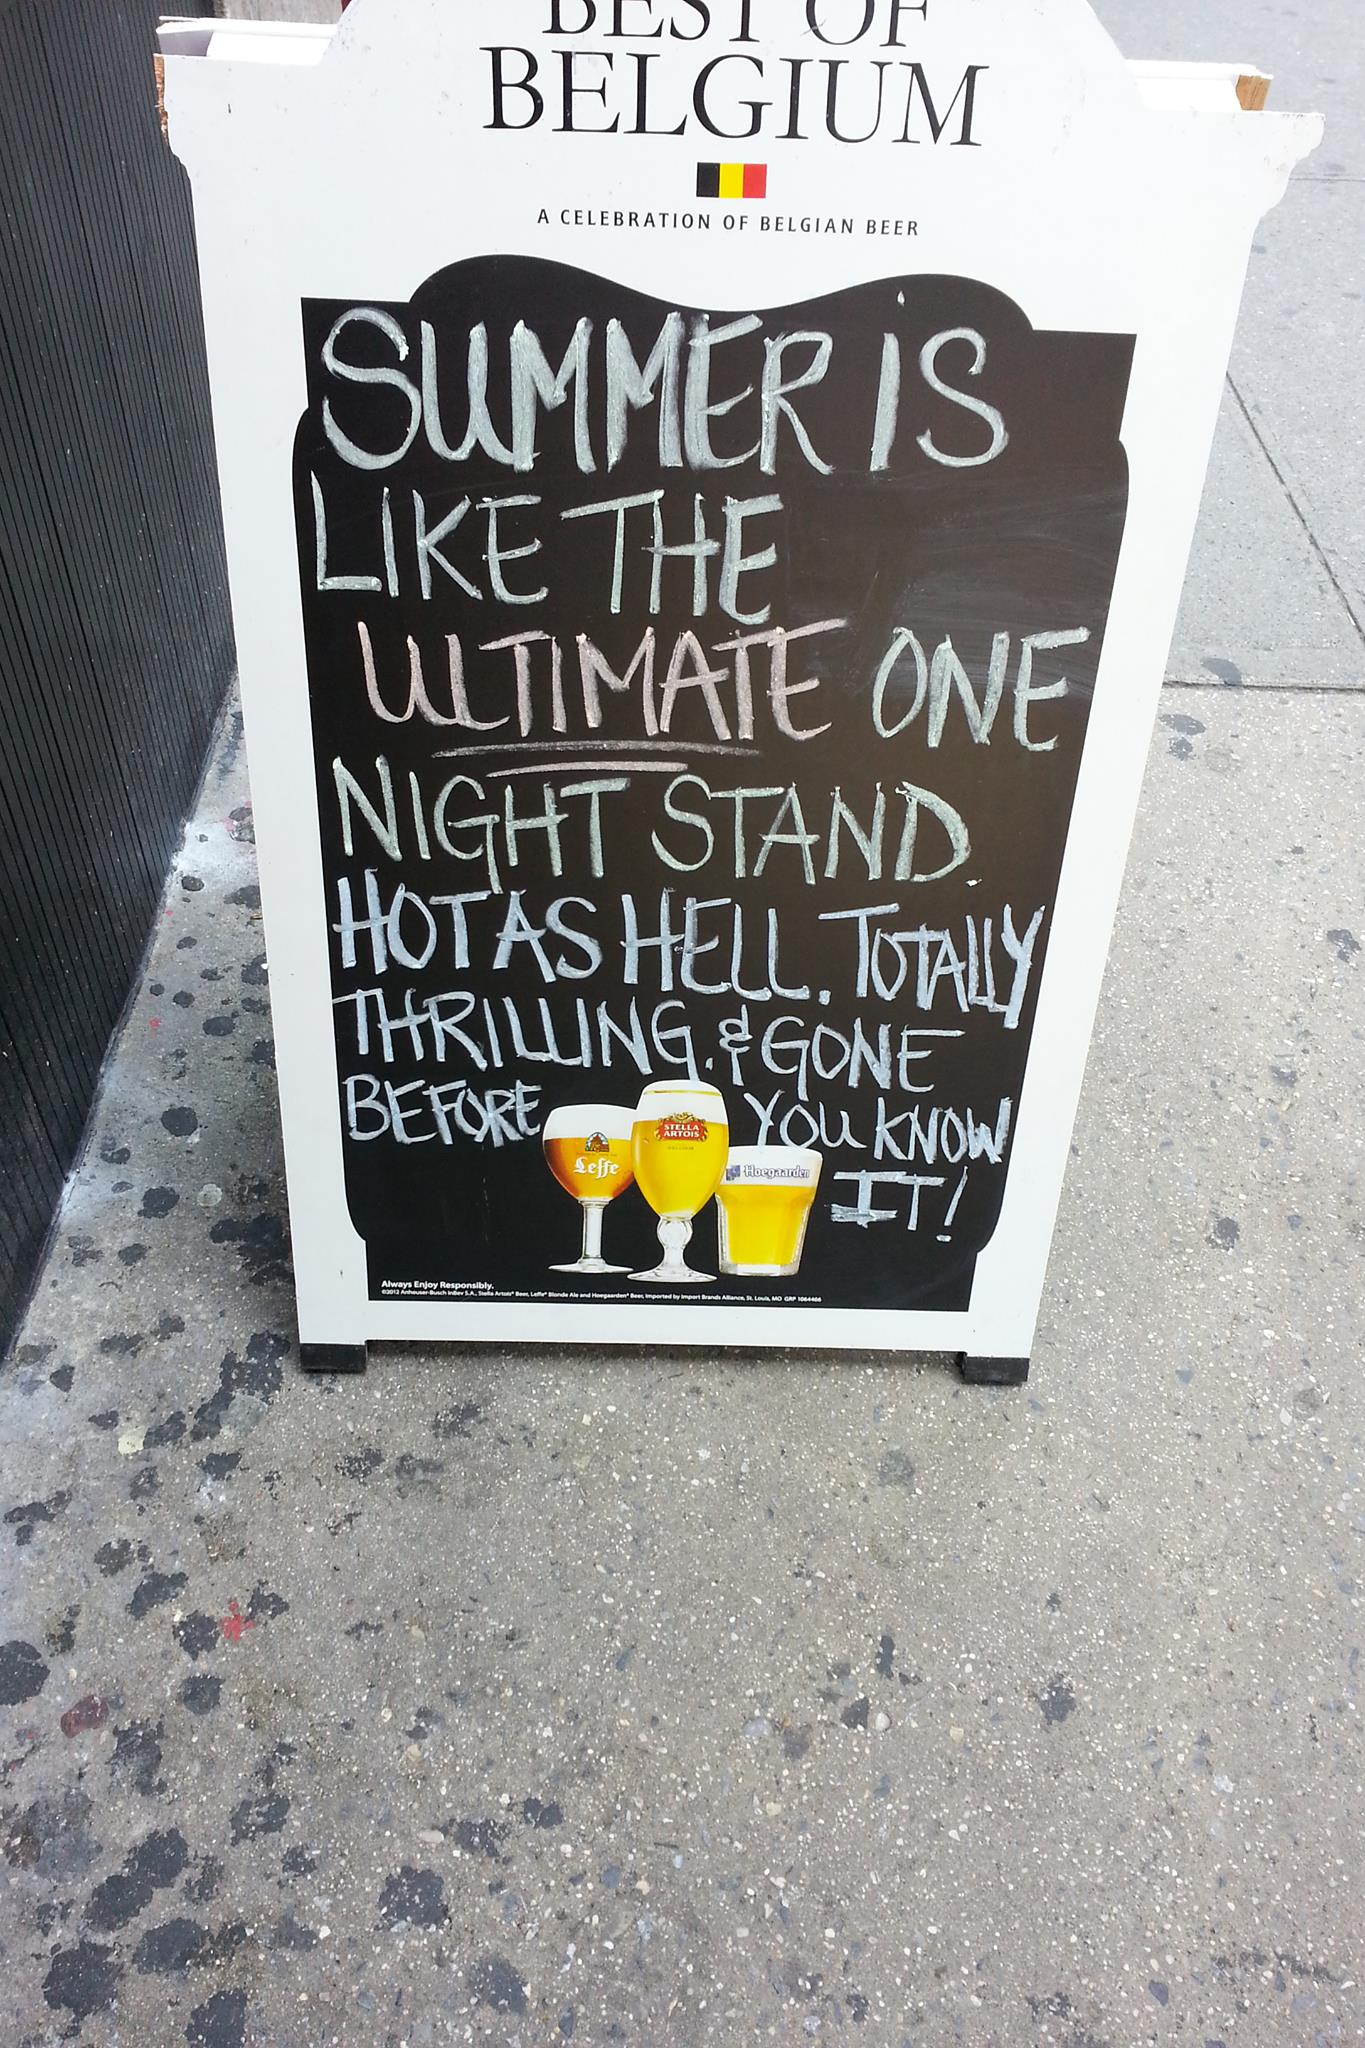 BEST OF
BELGIUM
A CELEBRATION OF BELGIAN BEER
SUMMER IS
LIKE THE
ULTIMATE ONE
NIGHT STAND.
HOT AS HELL. TOTALLY
THRILLING. & GONE
BEFORE YOU KNOW
IT!
Leffe
STELLA
ARTOIS
Hoegaarden
Always Enjoy Responsibly.
©2012 Anheuser-Busch InBev S.A., Stella Artois® Beer, Leffe® Blonde Ale and Hoegaarden® Beer, Imported by Import Brands Alliance, St. Louis, MO GRP 1064466